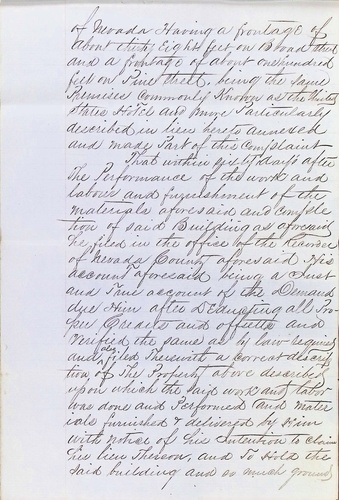 of Nevada Having a frontage of
about thirty Eight feet on Broad Street
and a frontage of about one hundred
feet on Pine Street, being the same
Premises Commonly Known as the United
States Hotel and More Particularly
described in lien hereto annexed
and made Part of this Complaint
That within sixty days after
The Performance of the work and
labour and furnishment of the
materials aforesaid and comple
tion of said Building as aforesaid
he filed in the office of the Recorder
of Nevada County aforesaid His
account aforesaid being a Just
and True account of the Demand
due Him after Deducting all Pro
per Credits and offsetts and
Verified the same as by law required
and also filed Therewith a correct descrip
tion of The Property above described
upon which the said work and labor
was done and Performed and mater
ials furnished & delivered by Him
with notice of his intention to claim
his lien Thereon, and To Hold the
said building and so much ground